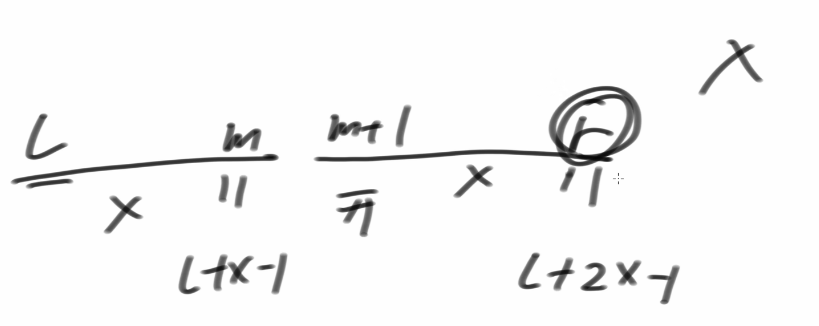 x
L m m+1 r
x || = || x ||
L+x-1 L+2x-1